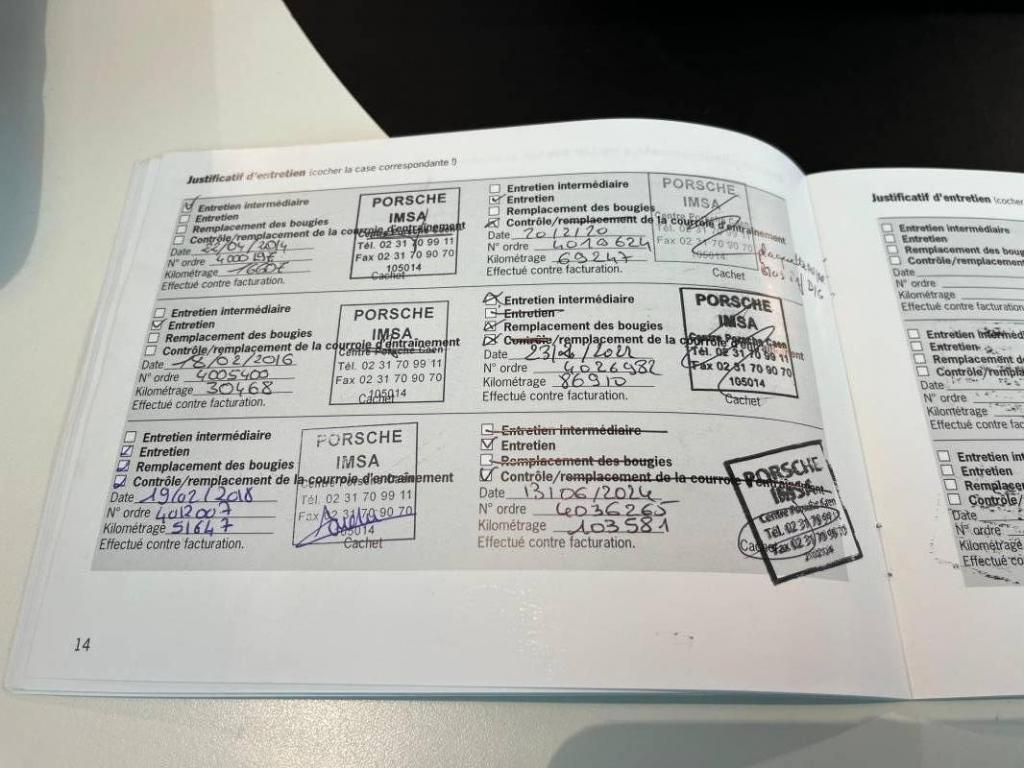 Justificatif d'entretien (cocher la case correspondante !)
Entretien intermédiaire
Entretien
Remplacement des bougies
Contrôle/remplacement de la courroie d'entraînement
Date /04/2014
N° ordre
Kilométrage
Effectué contre facturation.
PORSCHE
IMSA
Tél. 02 31 70 99 11
Fax 02 31 70 90 70
105014
Cachet
Entretien intermédiaire
Entretien
Remplacement des bougies
Contrôle/remplacement de la courroie d'entraînement
Date 18/02/2016
N° ordre 4005400
Kilométrage 30468
Effectué contre facturation.
PORSCHE
IMSA
Centre Porsche Caen
Tél. 02 31 70 99 11
Fax 02 31 70 90 70
105014
Cachet
Entretien intermédiaire
Entretien
Remplacement des bougies
Contrôle/remplacement de la courroie d'entraînement
Date 19/02/2018
N° ordre 4012007
Kilométrage 51647
Effectué contre facturation.
PORSCHE
IMSA
Tél. 02 31 70 99 11
Fax 02 31 70 90 70
105014
Cachet
Entretien intermédiaire
Entretien
Remplacement des bougies
Contrôle/remplacement de la courroie d'entraînement
Date 20/2/20
N° ordre 4019624
Kilométrage 69247
Effectué contre facturation.
PORSCHE
IMSA
Centre Porsche Caen
Tél. 02 31 70 99 11
Fax 02 31 70 90 70
105014
Cachet
Entretien intermédiaire
Entretien
Remplacement des bougies
Contrôle/remplacement de la courroie d'entraînement
Date 23/06/2021
N° ordre 4026982
Kilométrage 86910
Effectué contre facturation.
PORSCHE
IMSA
Centre Porsche Caen
Tél. 02 31 70 99 11
Fax 02 31 70 90 70
105014
Cachet
Entretien intermédiaire
Entretien
Remplacement des bougies
Contrôle/remplacement de la courroie d'entraînement
Date 13/06/2024
N° ordre 4036265
Kilométrage 103581
Effectué contre facturation.
PORSCHE
IMSA
Centre Porsche Caen
Tél. 02 31 70 99 11
Cachet
14
Justificatif d'entretien (cocher
Entretien intermédiaire
Entretien
Remplacement des boug
Contrôle/remplacement
Date
N° ordre
Kilométrage
Effectué contre facturation
Entretien intermédiaire
Entretien
Remplacement d
Contrôle/rempla
Date
N° ordre
Kilométrage
Effectué contre fact
Entretien int
Entretien
Remplace
Contrôle/
Date
N° ordre
Kilométrage
Effectué con